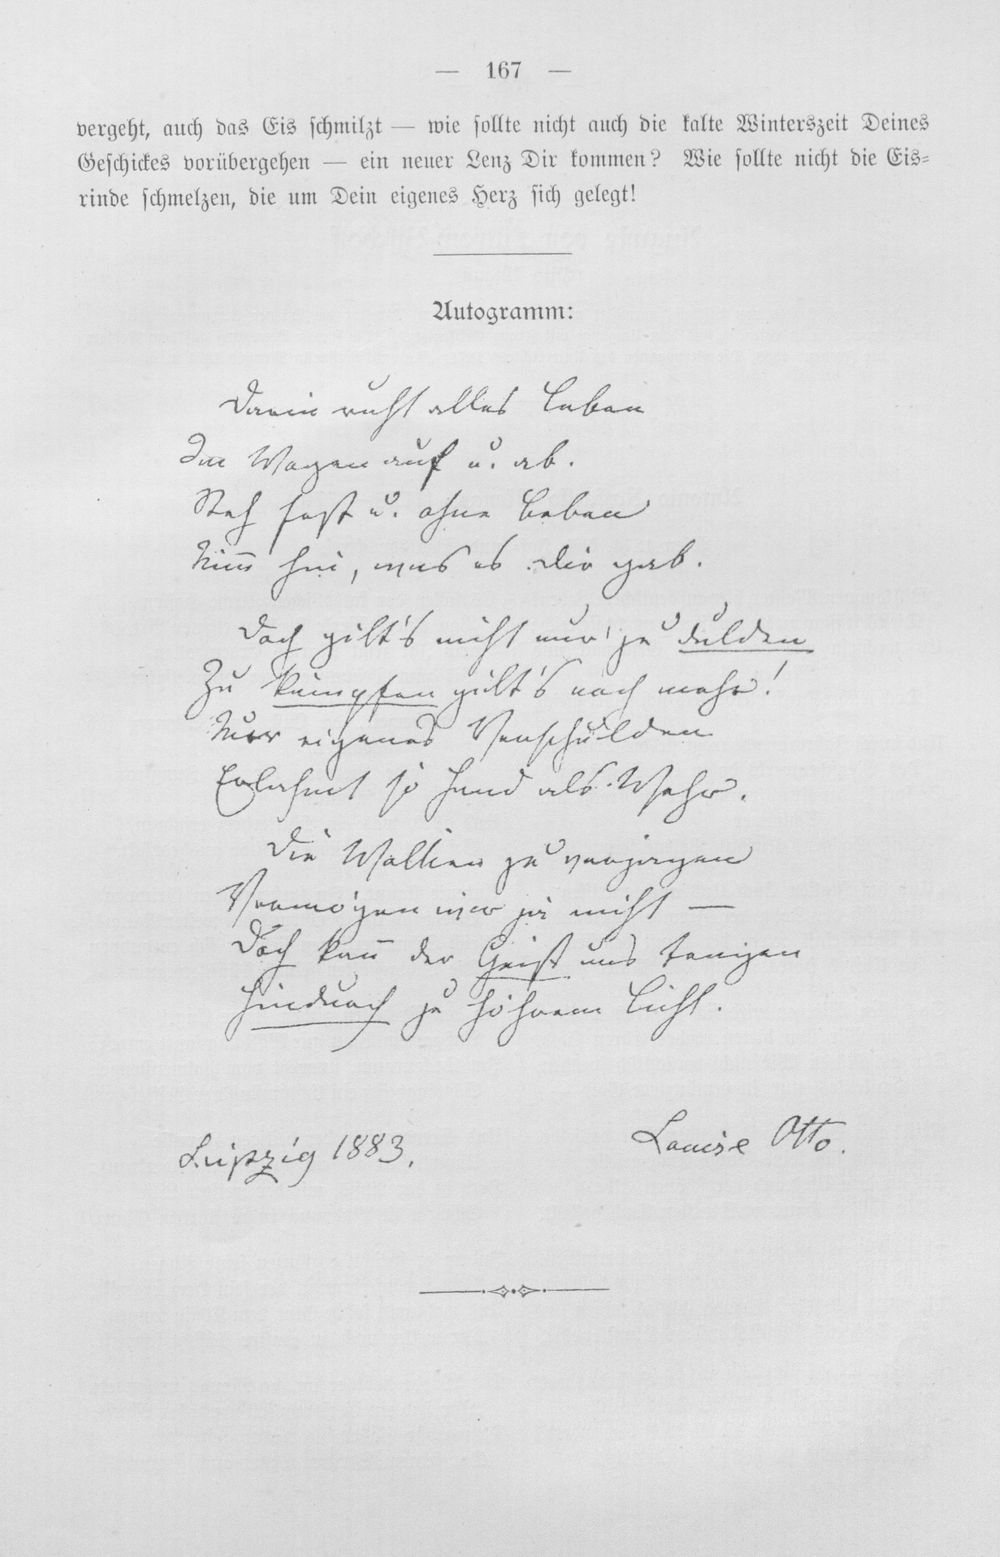 — 167 —
vergeht, auch das Eis schmilzt — wie sollte nicht auch die kalte Winterszeit Deines
Geschickes vorübergehen — ein neuer Lenz Dir kommen? Wie sollte nicht die Eis-
rinde schmelzen, die um Dein eigenes Herz sich gelegt!
Autogramm:
Darin ruht alles Leben
Im Wogen auf u. ab.
Steh fest u. ohne Beben
Nim̅ hin, was es dir gab.
Doch gilt's nicht nur zu dulden
Zu kämpfen gilt's noch mehr!
Nur eigenes Verschulden
Erlahmt so Hand als Wehr.
Die Wolken zu verjagen
Vermögen wir ja nicht —
Doch kan̅ der Geist uns tragen
Hindurch zu höhrem Licht.
Leipzig 1883.
Louise Otto.